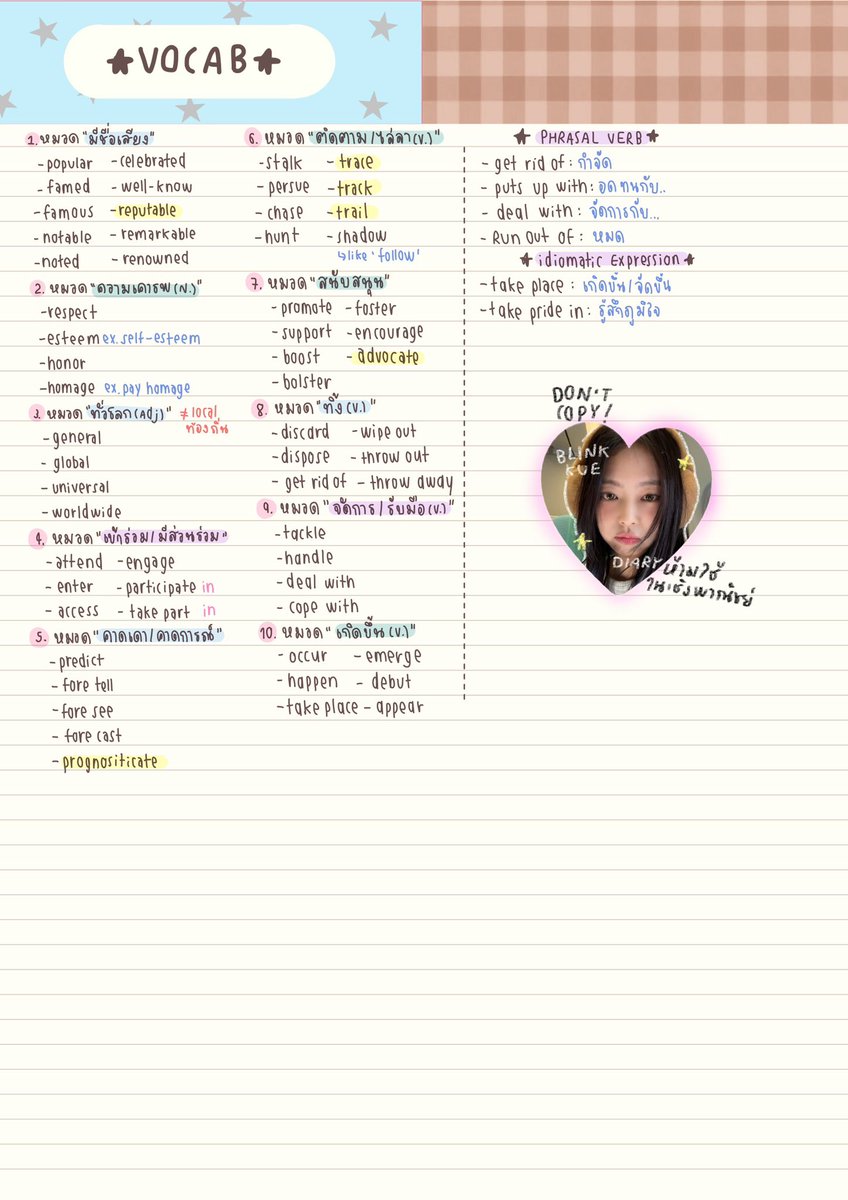 ★VOCAB★
1. หมวด "มีชื่อเสียง"
-popular -celebrated
-famed -well-know
-famous -reputable
-notable -remarkable
-noted -renowned
2. หมวด "ความเคารพ(N.)"
-respect
-esteem ex.self-esteem
-honor
-homage ex.pay homage
3. หมวด "ทั่วโลก(Adj)" ≠ local
ท้องถิ่น
-general
- global
-universal
-worldwide
4. หมวด "เข้าร่วม/มีส่วนร่วม"
-attend -engage
-enter -participate in
- access - take part in
5. หมวด "คาดเดา/คาดการณ์"
-predict
-fore tell
-fore see
- fore cast
-prognositicate
6. หมวด "ติดตาม/ไล่ล่า(V.)"
-stalk -trace
-persue -track
-chase -trail
-hunt -shadow
↳like 'follow'
7. หมวด "สนับสนุน"
-promote -foster
-support -encourage
-boost -advocate
-bolster
8. หมวด "ทิ้ง(V.)"
-discard -wipe out
-dispose -throw out
- get rid of - throw away
9. หมวด "จัดการ/รับมือ(V.)"
-tackle
-handle
-deal with
- cope with
10. หมวด "เกิดขึ้น(V.)"
- occur -emerge
-happen - debut
-take place - appear
★ PHRASAL VERB★
- get rid of: กำจัด
- puts up with: อดทนกับ..
- deal with: จัดการกับ...
- Run out of: หมด
★ idiomatic Expression★
-take place : เกิดขึ้น/จัดขึ้น
-take pride in: รู้สึกภูมิใจ
DON'T
COPY!
BLINK
KUE
DIARY
ห้ามใช้
ในเชิงพาณิชย์